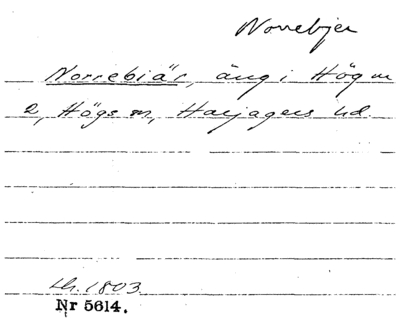 Norrebjer
Norrebiär, äng i Hög nr
2, Högs sn, Harjagers hd.
Lh. 1803
Nr 5614.